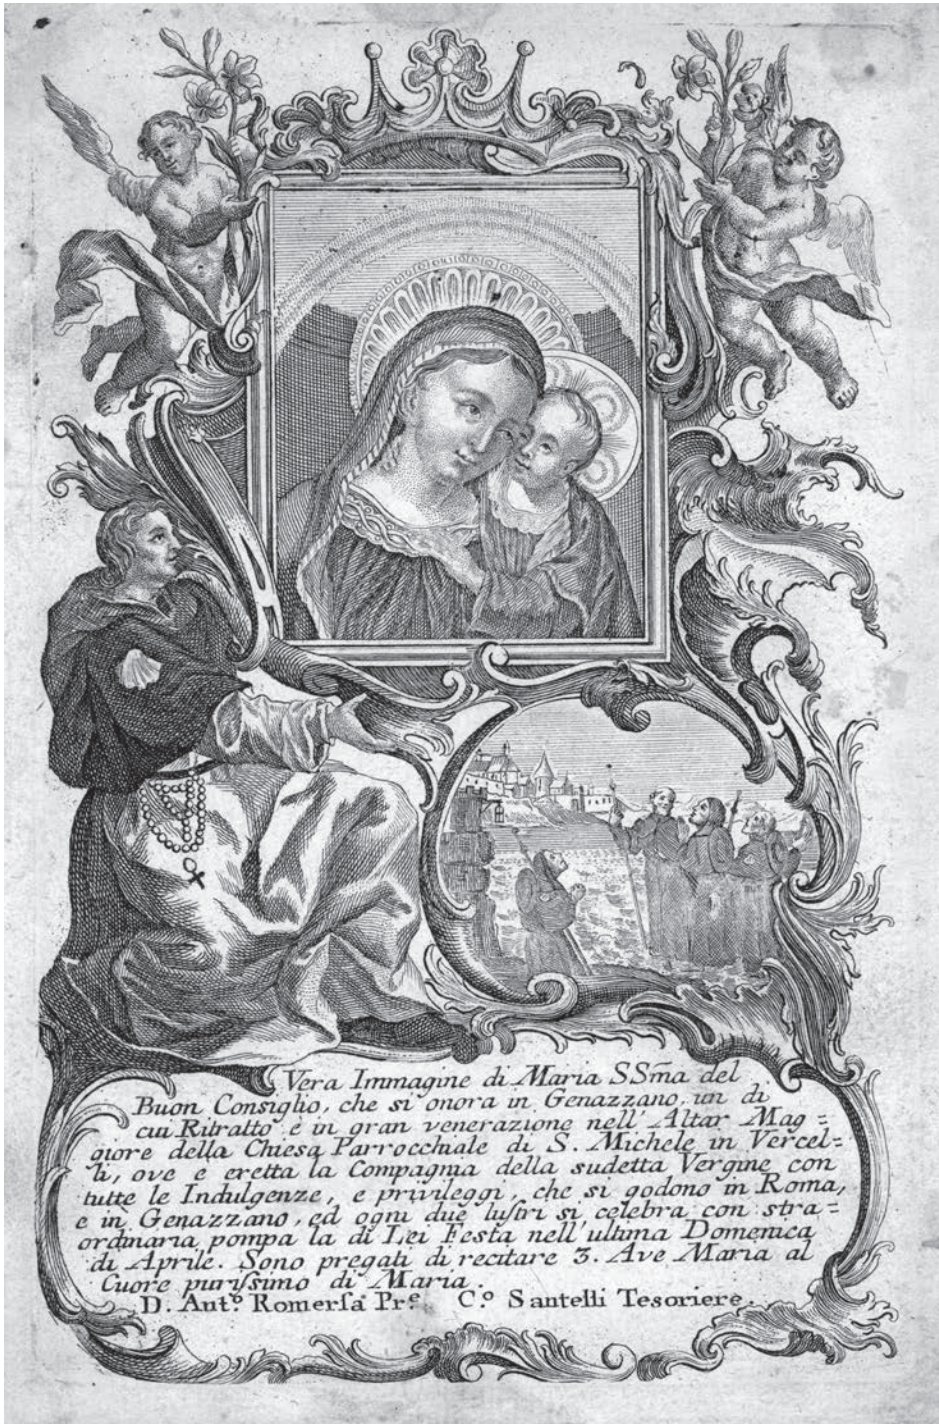 Vera Immagine di Maria SSm̃a del
Buon Consiglio, che si onora in Genazzano, un di
cui Ritratto è in gran venerazione nell' Altar Mag=
giore della Chiesa Parrocchiale di S. Michele in Vercel=
li, ove e eretta la Compagnia della sudetta Vergine con
tutte le Indulgenze, e privileggi, che si godono in Roma,
e in Genazzano, ed ogni due lustri si celebra con stra=
ordinaria pompa la di Lei Festa nell'ultima Domenica
di Aprile. Sono pregati di recitare 3. Ave Maria al
Cuore purissimo di Maria.
D. Antº. Romersa Prº. Cº. Santelli Tesoriere.